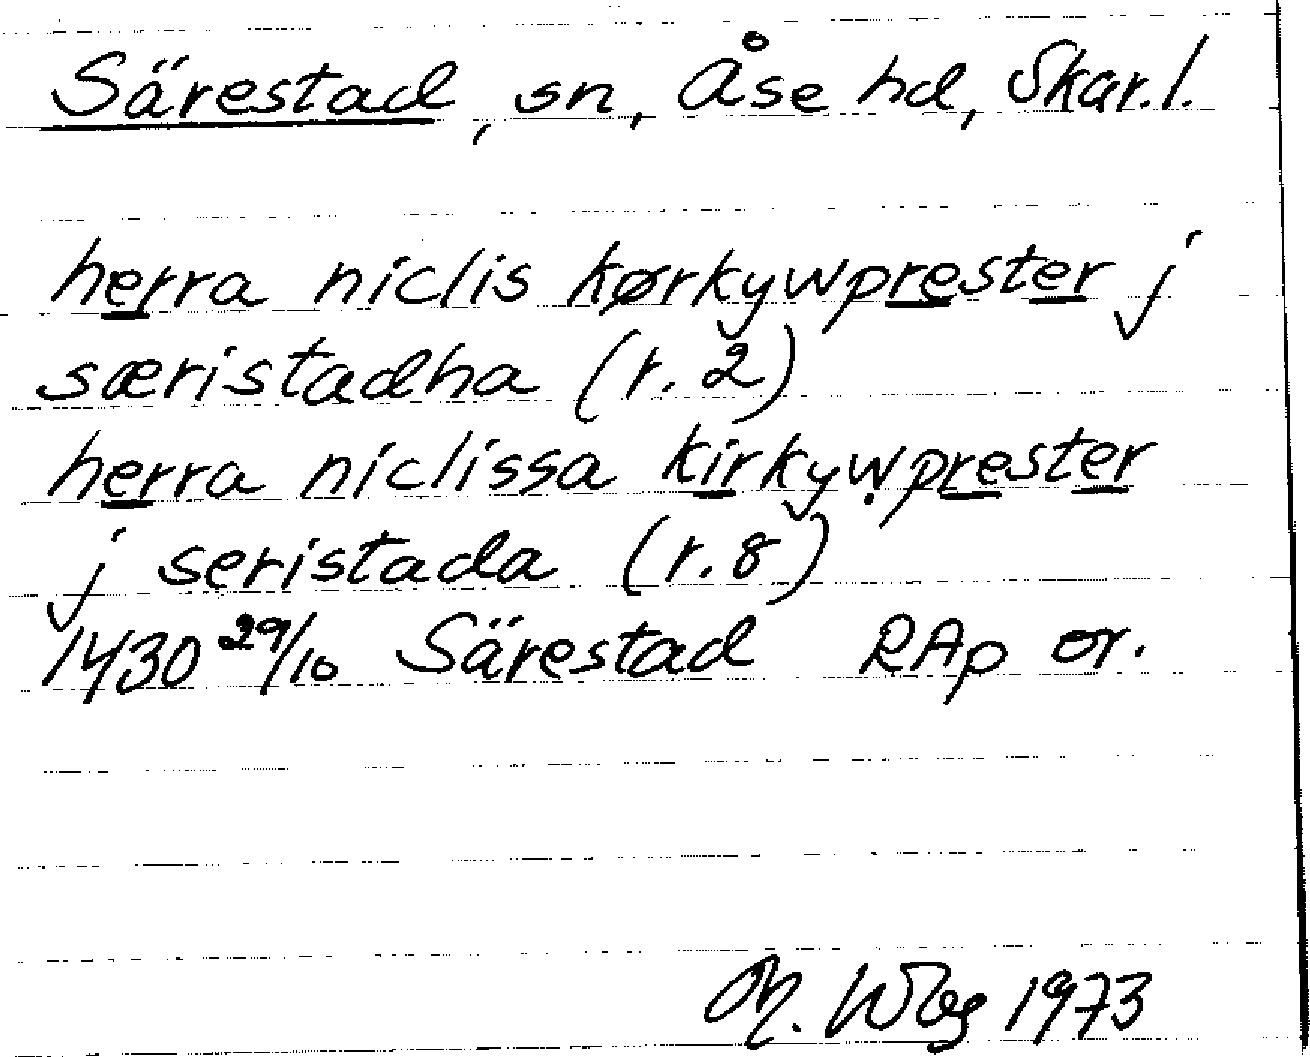 Särestad, sn, Åse hd, Skar.l.
herra niclis kørkywprester j
særistadha (r. 2)
herra niclissa kirkywprester
j seristada (r. 8)
1430 29/10 Särestad RAp or.
1973